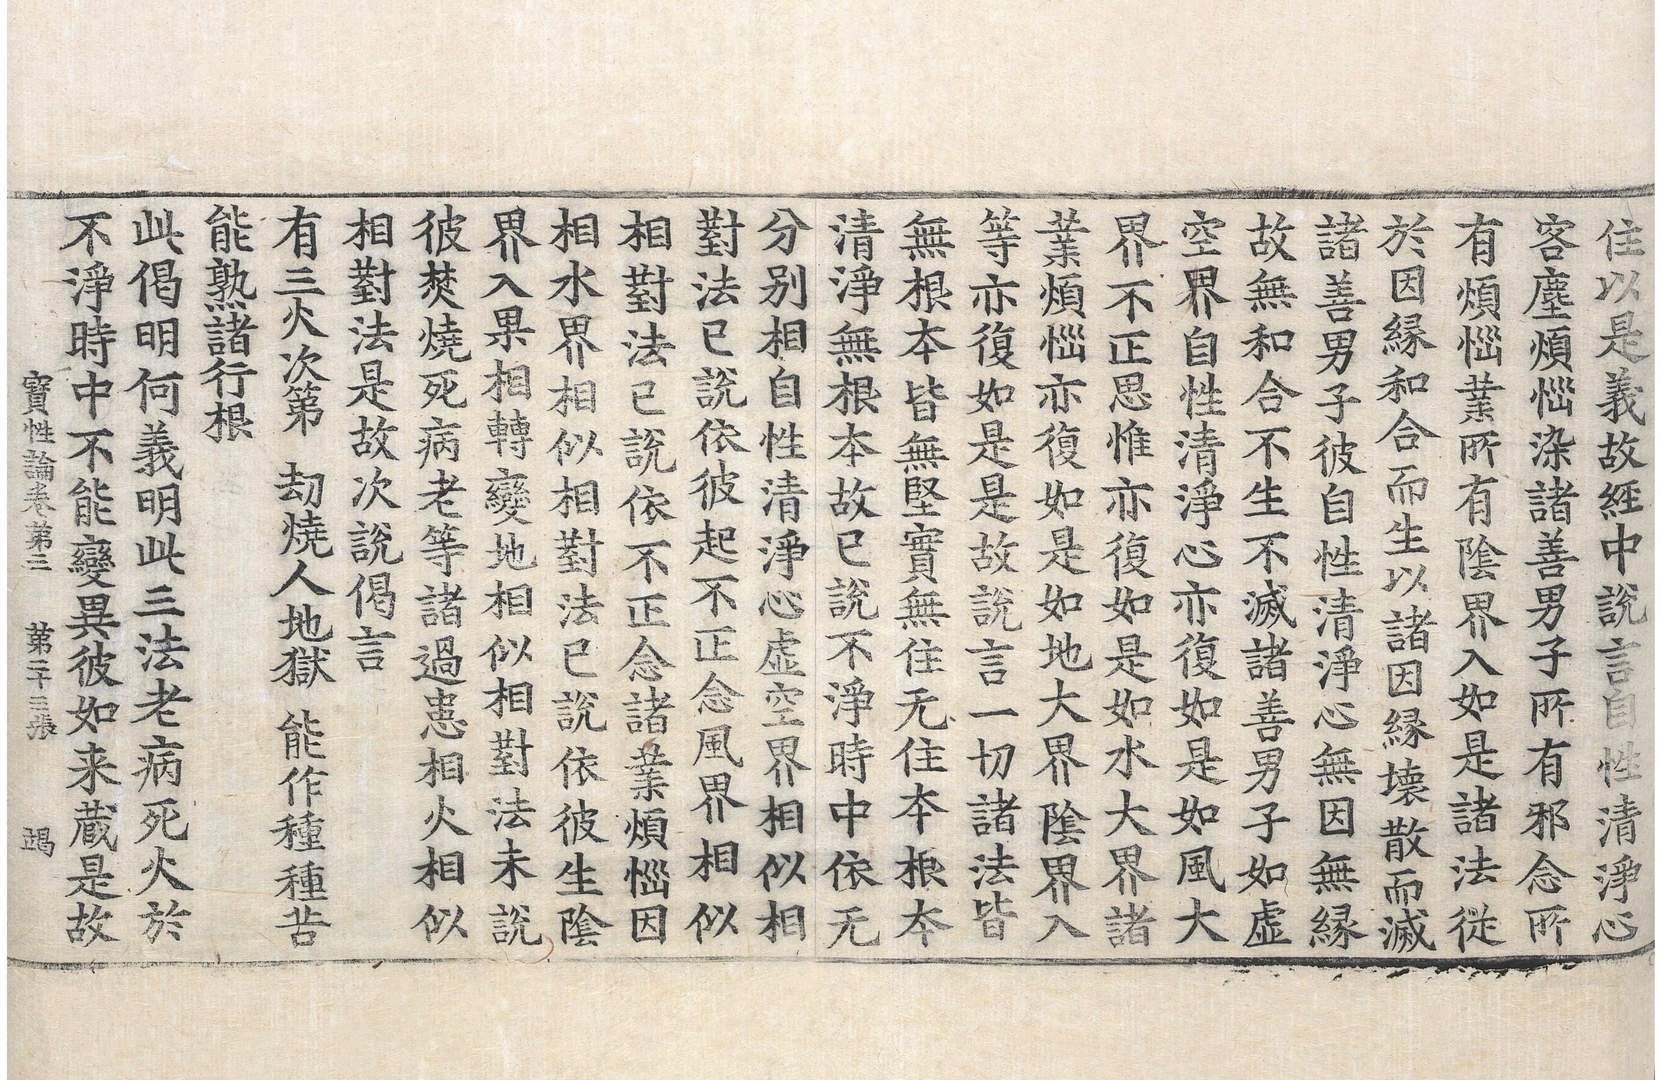 住以是義故經中說言自性清淨心
客塵煩惱染諸善男子所有邪念所
有煩惱業所有陰界入如是諸法從
於因緣和合而生以諸因緣壞散而滅
諸善男子彼自性清淨心無因無緣
故無和合不生不滅諸善男子如虛
空界自性清淨心亦復如是如風大
界不正思惟亦復如是如水大界諸
業煩惱亦復如是如地大界陰界入
等亦復如是是故說言一切諸法皆
無根本皆無堅實無住无住本根本
清淨無根本故已說不淨時中依无
分別相自性清淨心虛空界相似相
對法已說依彼起不正念風界相似
相對法已說依不正念諸業煩惱因
相水界相似相對法已說依彼生陰
界入果相轉變地相似相對法未說
彼焚燒死病老等諸過患相火相似
相對法是故次說偈言
有三火次第　劫燒人地獄　能作種種苦
能熟諸行根
此偈明何義明此三法老病死火於
不淨時中不能變異彼如来蔵是故
寶性論卷第三　第二十三張　竭